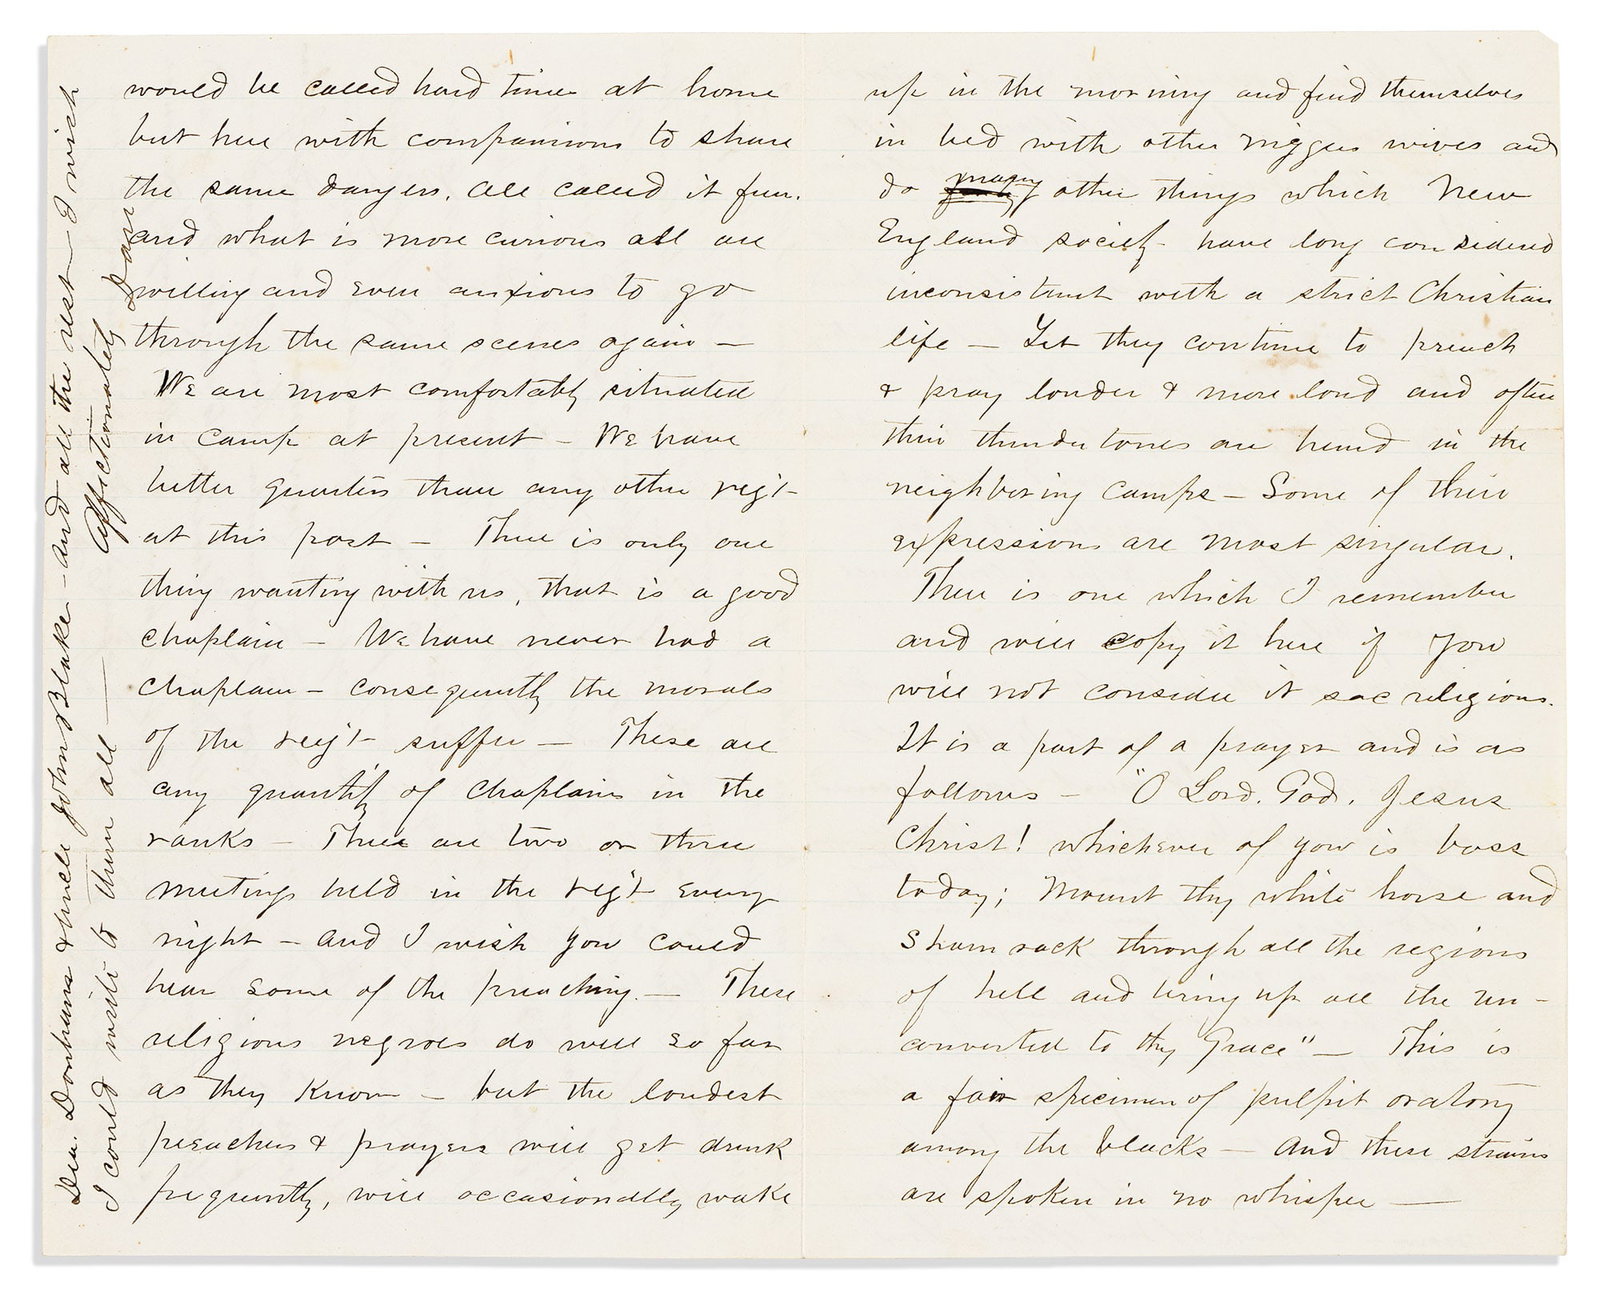 would be called hard times at home
but here with companions to share
the same dangers, all called it fun.
and what is more curious all are
willing and even anxious to go
through the same scenes again —
We are most comfortably situated
in camp at present — We have
better quarters than any other reg't
at this post — There is only one
thing wanting with us, that is a good
chaplain — We have never had a
chaplain — consequently the morals
of the reg't suffer — These are
any quantity of chaplains in the
ranks — There are two or three
meetings held in the reg't every
night — and I wish you could
hear some of the preaching. — These
religious negroes do well so far
as they know — but the loudest
preachers & prayers will get drunk
frequently, will occasionally wake
up in the morning and find themselves
in bed with other niggers wives and
do many other things which New
England society have long considered
inconsistent with a strict Christian
life — Yet they continue to preach
& pray louder & more loud and often
their thunder tones are heard in the
neighboring camps — Some of their
expressions are most singular.
There is one which I remember
and will copy it here if you
will not consider it sacreligious.
It is a part of a prayer and is as
follows — "O Lord. God. Jesus
Christ! whichever of you is boss
today; Mount thy white horse and
Sham rack through all the regions
of hell and bring up all the un-
converted to thy Grace" — This is
a fair specimen of pulpit oratory
among the blacks — And these strains
are spoken in no whisper —
Dea. Donhams & Uncle John Blake — and all the rest — I wish
I could write to them all —
Affectionately Sam